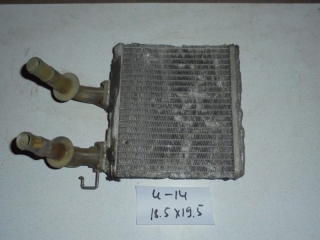 u-14
18.5x19.5